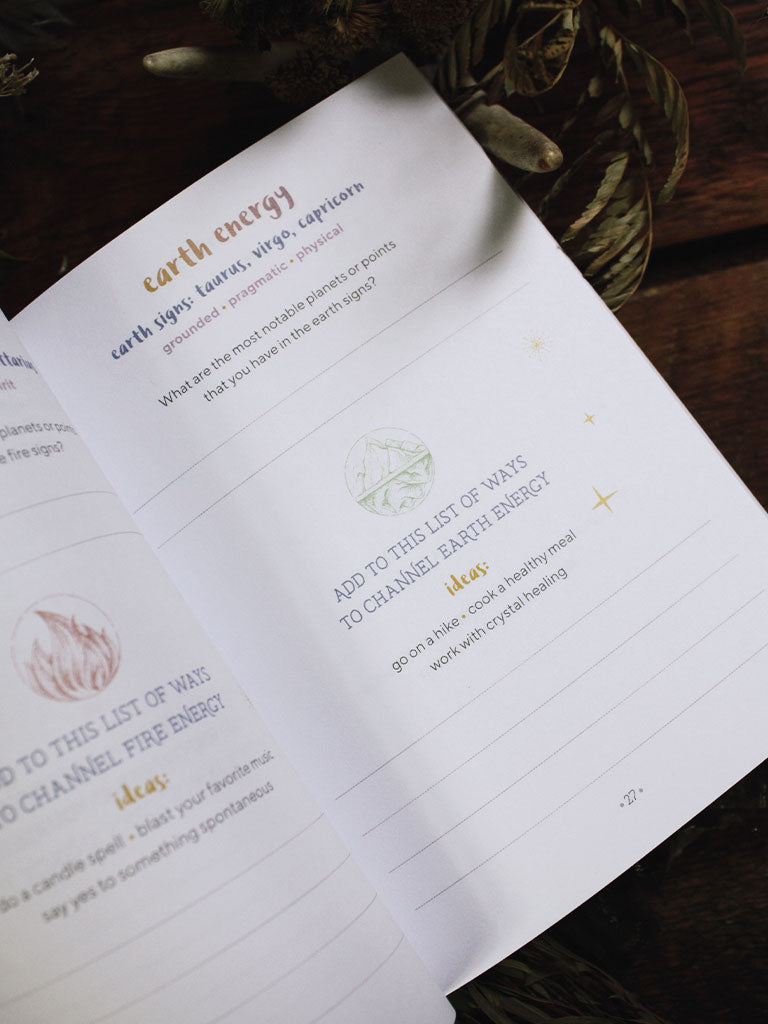 planets or points
e fire signs?
TO THIS LIST OF WAYS
TO CHANNEL FIRE ENERGY
ideas:
do a candle spell • blast your favorite music
say yes to something spontaneous
earth energy
earth signs: taurus, virgo, capricorn
grounded • pragmatic • physical
What are the most notable planets or points
that you have in the earth signs?
ADD TO THIS LIST OF WAYS
TO CHANNEL EARTH ENERGY
ideas:
go on a hike • cook a healthy meal
work with crystal healing
• 27 •